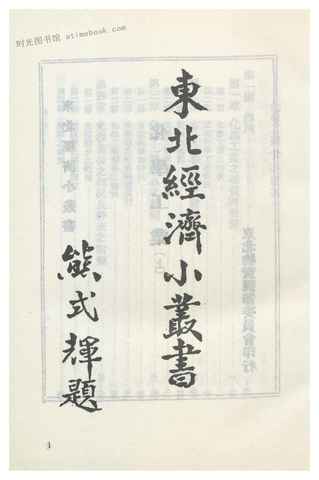 时光图书馆 stimebook.com
東北經濟小叢書
熊式輝題